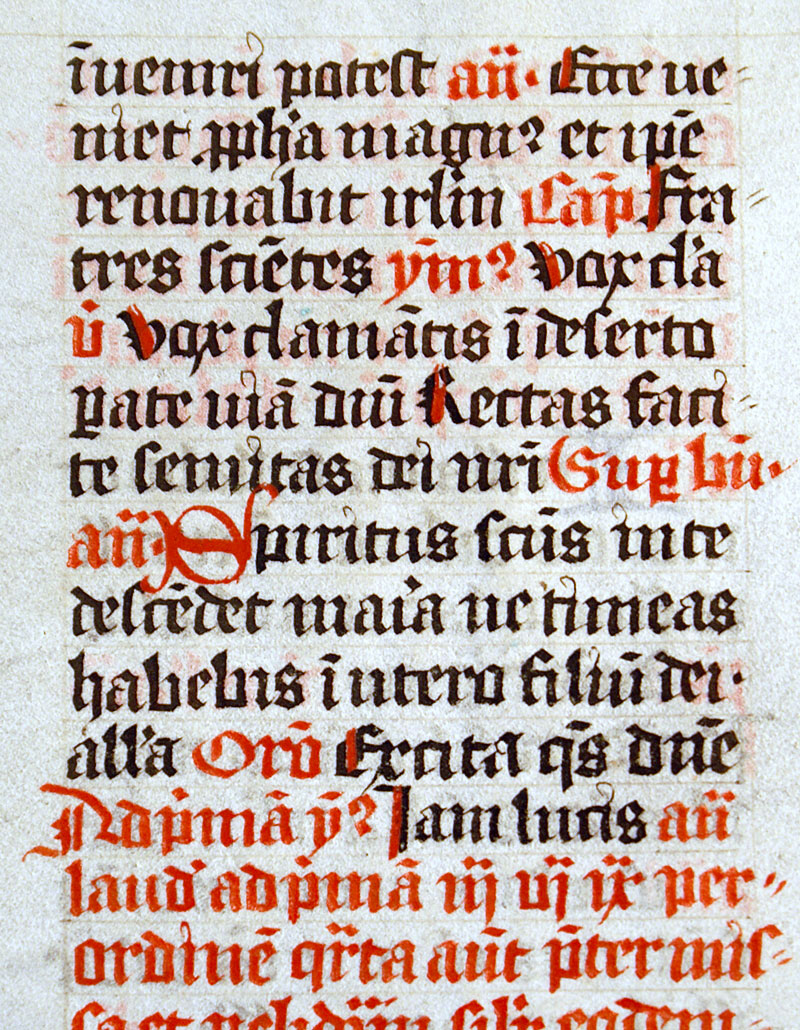 īuenirı potest añ. Ecce ue=
niet ꝓph̄a magnꝰ et ip̄e
renouabit irl̄m Cap̄ Fra=
tres sciētes ym̄ꝰ Vox cl̄a
v̄ Vox clamātis ī deserto
ꝑate uiā dn̄i Rectas faci=
te semitas dei nr̄i Suꝑ bn̄.
añ. Spiritus scūs in te
descēdet maīa ne timeas
habebis ī utero filiū dei.
all'a Orō Excita qs̄ dn̄e
Ad p̄mā ȳꝰ Iam lucis añ
laud' ad p̄mā iij vj ix per=
ordinē qr̄ta aūt p̄termis=
sa et